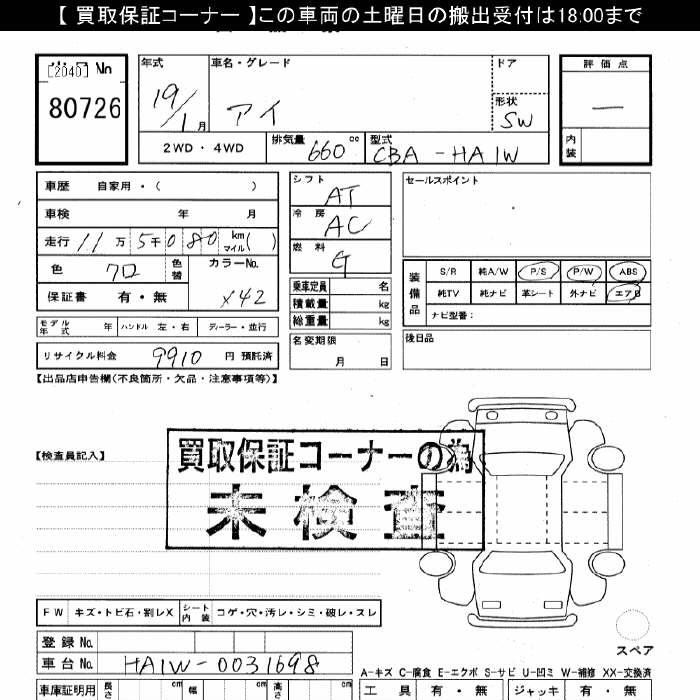 【 買取保証コーナー 】この車両の土曜日の搬出受付は18:00まで
[2040] No
80726
年式 車名・グレード ドア 評価点
19/1月 アイ 形状 SW —
2WD・4WD 排気量 660 cc 型式 CBA-HA1W 内装
車歴 自家用・( )
車検 年 月
走行 11万5千080 km マイル( )
色 クロ 色替 カラーNo. X42
保証書 有・無
モデル年式 年 ハンドル 左・右 ディーラー・並行
リサイクル料金 9910 円 預託済
シフト AT
冷房 AC
燃料 G
乗車定員 名
積載量 kg
総重量 kg
名変期限 月 日
セールスポイント
装備品 S/R 純A/W P/S P/W ABS
純TV 純ナビ 革シート 外ナビ エアB
ナビ型番:
後日品
【出品店申告欄(不良箇所・欠品・注意事項等)】
【検査員記入】
買取保証コーナーの為
未検査
FW キズ・トビ石・割レX シート内装 コゲ・穴・汚レ・シミ・破レ・スレ
スペア
登録No.
車台No. HA1W-0031698
A-キズ C-腐食 E-エクボ S-サビ U-凹ミ W-補修 XX-交換済
車庫証明用 長さ cm 幅 cm 高さ cm 工具 有・無 ジャッキ 有・無